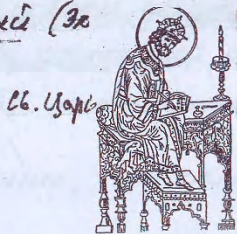 ий (Эк
Св. Царь